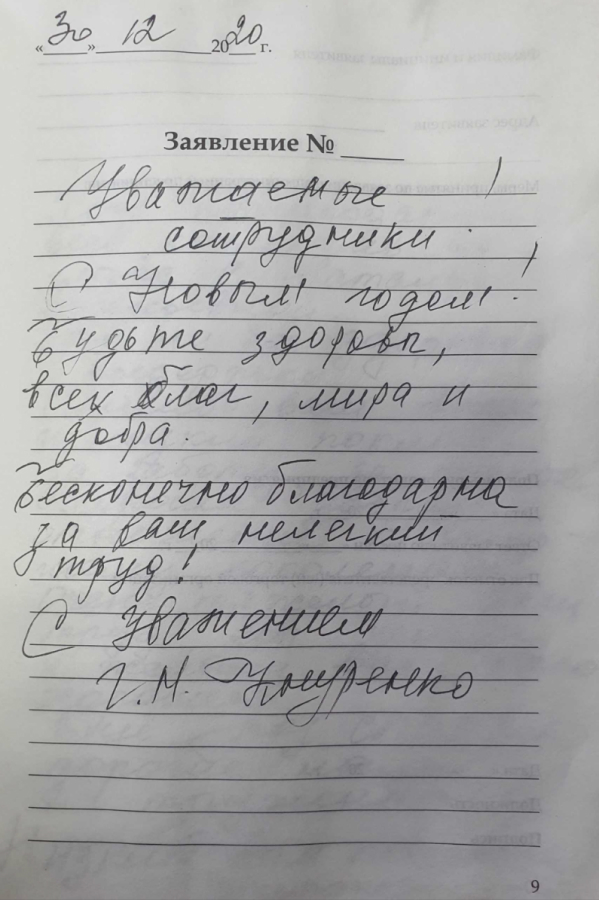 «30» 12 2020 г.
Заявление №
Уважаемые
сотрудники!
С Новым годом!
Будьте здоровы,
всех благ, мира и
добра.
Бесконечно благодарна
за ваш нелегкий
труд!
С уважением
Г.Н.
9